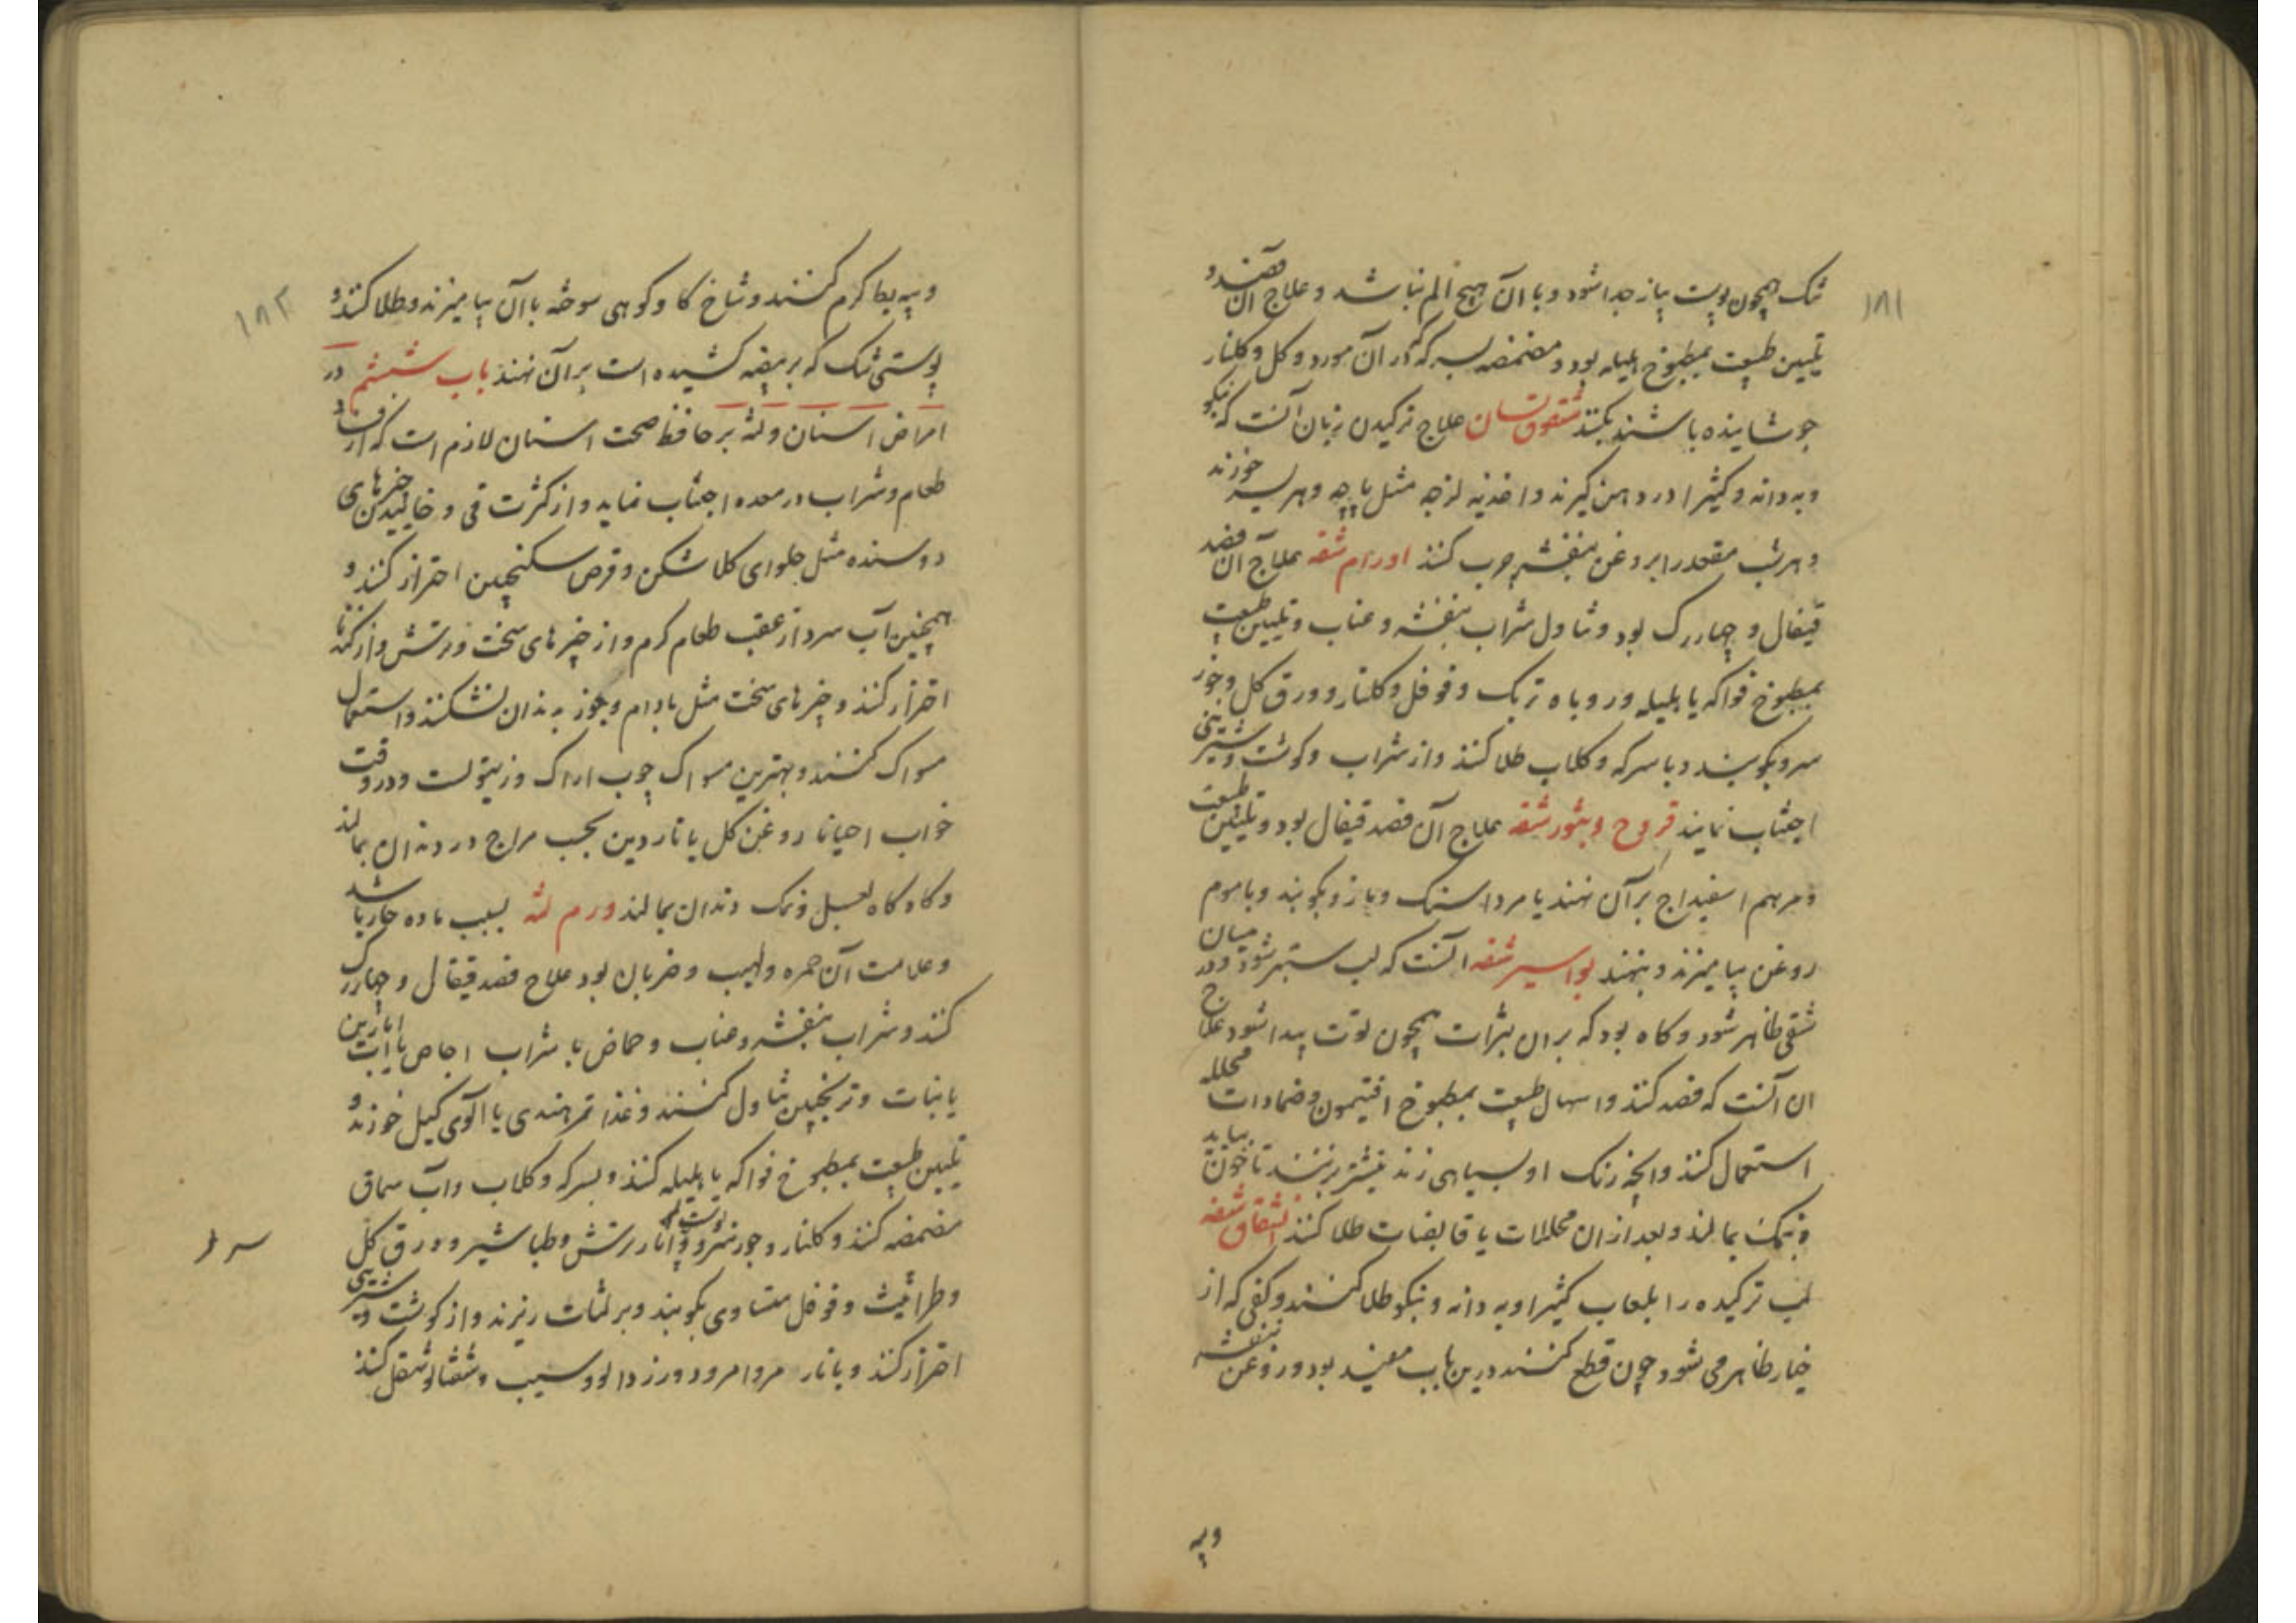 ۱۸۱
تنک همچون پوست پیاز جدا شود و با آن هیچ الم نباشد و علاج آن فصد و
تلیین طبیعت بمطبوخ هلیله بود و مضمضه بسرکه که در آن مورد و کل و کلنار
جوشانیده باشند بکنند شقوق لسان علاج ترکیدن زبان آنست که نیکو
و به دانه و کثیرا در دهن گیرند و اغذیه لزجه مثل پاچه و هریسه خورند
و هر شب مقعد را بروغن بنفشه چرب کنند اورام شفه علاج آن فصد
قیفال و چهار رک بود و تناول شراب بنفشه و عناب و تلیین طبیعت
بمطبوخ فواکه یا هلیله و روباه تربک و فوفل و کلنار و ورق کل و جوز
سرو بکوبند و با سرکه و کلاب طلا کنند و از شراب و کوشت و شیرینی
اجتناب نمایند قروح و بثور شفه علاج آن فصد قیفال بود و تلیین طبیعت
و مرهم اسفیداج بر آن نهند یا مرداسنک و مازو بکوبند و با موم
روغن بیامیزند و بنهند بواسیر شفه آنست که لب ستبر شود و در میان
شقی ظاهر شود و کاه بود که بران بثرات همچون توت پیدا شود علاج
ان آنست که فصد کنند و اسهال طبیعت بمطبوخ افتیمون و ضمادات محلله
استعمال کنند و آنچه رنک او بسیاهی زند نیشتر بزنند تا خون بیاید
و نمک بمالند و بعد از ان محللات یا قابضات طلا کنند انشقاق شفه
لب ترکیده را بلعاب کثیرا و به دانه و نیکو طلا کنند و کفی که از
خیار ظاهر می شود چون قطع کنند درین باب مفید بود و روغن بنفشه
وپیه
۱۸۲
وپیه بط کرم کنند و شاخ کاو کوهی سوخته با آن بیامیزند و طلا کنند و
پوستی تنک که بر بیضه کشیده است بر آن نهند باب ششم در
امراض اسنان و لثه بر حافظ صحت اسنان لازم است که از فساد
طعام و شراب در معده اجتناب نماید و از کثرت قی و خائیدن چیزهای
دوسنده مثل حلوای کلاشکن و قرص سکنجبین احتراز کنند و
همچنین آب سرد از عقب طعام کرم و از چیزهای سخت و ترش و از کندنا
احتراز کنند و چیزهای سخت مثل بادام و جوز به دندان نشکنند و استعمال
مسواک کنند و بهترین مسواک چوب اراک و زیتونست و در وقت
خواب احیانا روغن کل یا ناردین بحسب مزاج در دندان بمالند
و کاه کاه بعسل و نمک دندان بمالند ورم لثه بسبب ماده حار باشد
و علامت آن حمره و لهیب و ضربان بود علاج فصد قیفال و چهار رک
کنند و شراب بنفشه و عناب و حماض با شراب اجاص یا آب انارین
یا نبات و ترنجبین تناول کنند و غذا تمر هندی یا آلوی کیل خورند و
تلیین طبیعت بمطبوخ فواکه یا هلیله کنند و بسرکه و کلاب و آب سماق
مضمضه کنند و کلنار و جوز سرو و پوست انار ترش و طباشیر و ورق کل
و طراثیث و فوفل متساوی بکوبند و بر لثات ریزند و از کوشت و شیرینی
احتراز کنند و بانار مز و امرود و زردالو و سیب و شفتالو تنقل کنند